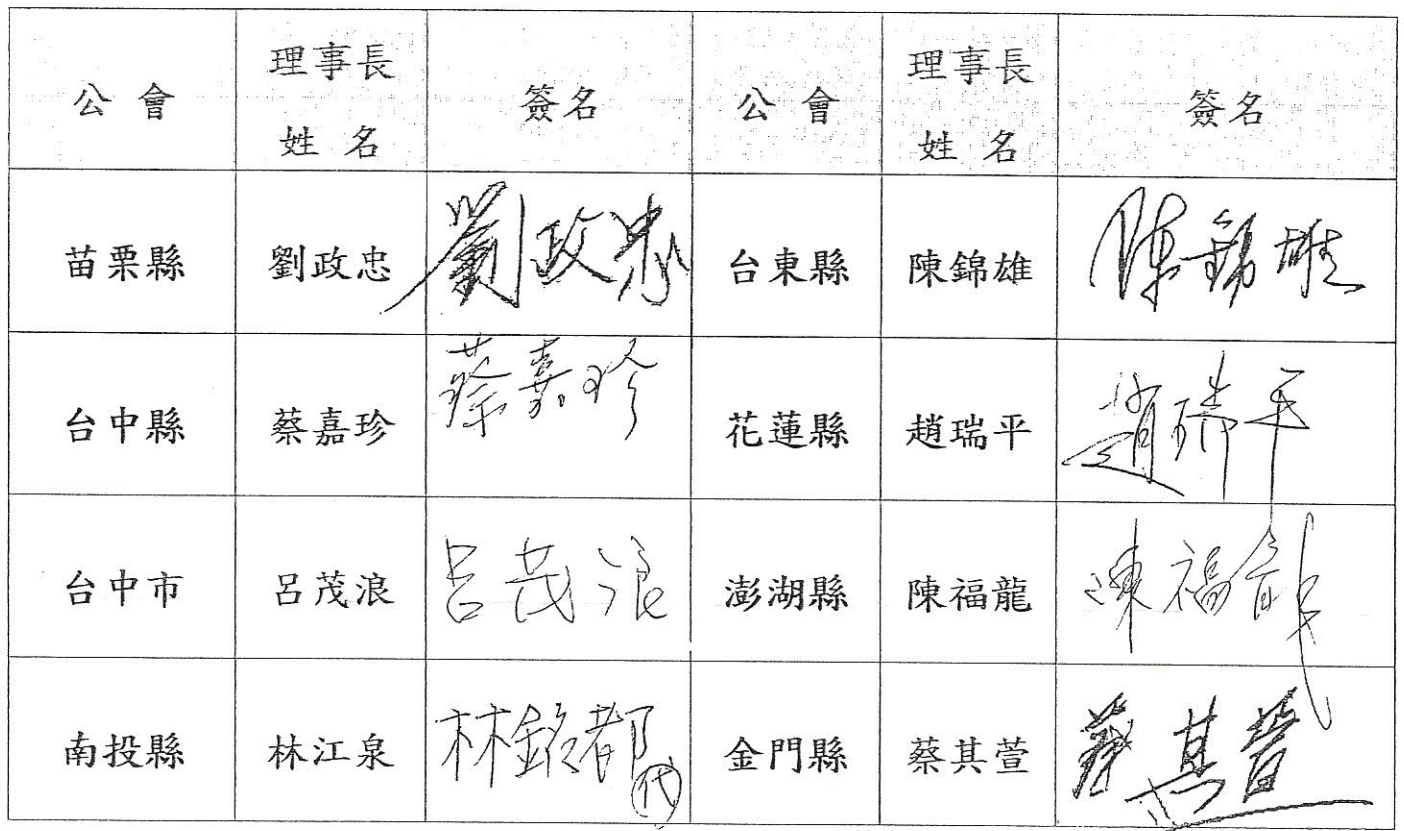 公會 理事長姓名 簽名 公會 理事長姓名 簽名
苗栗縣 劉政忠 劉政忠 台東縣 陳錦雄 陳錦雄
台中縣 蔡嘉珍 蔡嘉珍 花蓮縣 趙瑞平 趙瑞平
台中市 呂茂浪 呂茂浪 澎湖縣 陳福龍 陳福龍
南投縣 林江泉 林銘都 代 金門縣 蔡其萱 蔡其萱